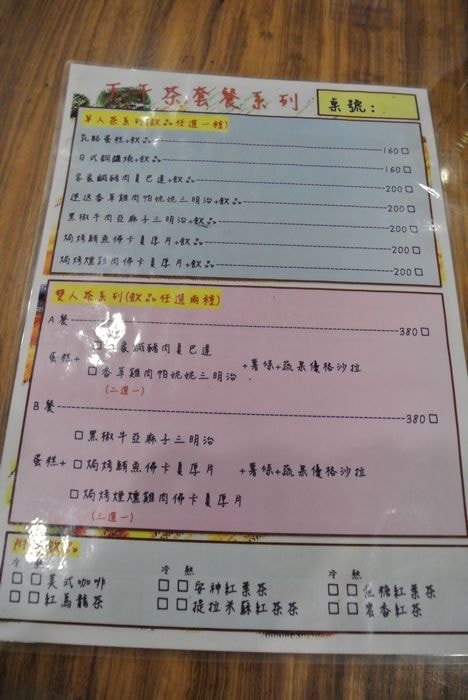 下午茶套餐系列
桌號:
單人茶系列(飲品任選一種)
乳酪蛋糕+飲品 160 □
日式銅鑼燒+飲品 160 □
客家鹹豬肉貝巴達+飲品 200 □
迷迭香草雞肉帕妮妮三明治+飲品 200 □
黑椒牛肉亞麻子三明治+飲品 200 □
焗烤鮪魚佛卡夏厚片+飲品 200 □
焗烤燻雞肉佛卡夏厚片+飲品 200 □
雙人茶系列(飲品任選兩種)
A餐 380 □
□ 客家鹹豬肉貝巴達
蛋糕+ +薯條+蔬果優格沙拉
□ 香草雞肉帕妮妮三明治
(二選一)
B餐 380 □
□ 黑椒牛亞麻子三明治
蛋糕+ □ 焗烤鮪魚佛卡夏厚片 +薯條+蔬果優格沙拉
□ 焗烤煙燻雞肉佛卡夏厚片
(三選一)
附餐飲品
冷 熱 冷 熱 冷 熱
□ □ 美式咖啡 □ □ 安神紅葉茶 □ □ 焦糖紅葉茶
□ □ 紅烏龍茶 □ □ 提拉米蘇紅茶茶 □ □ 蜜香紅茶